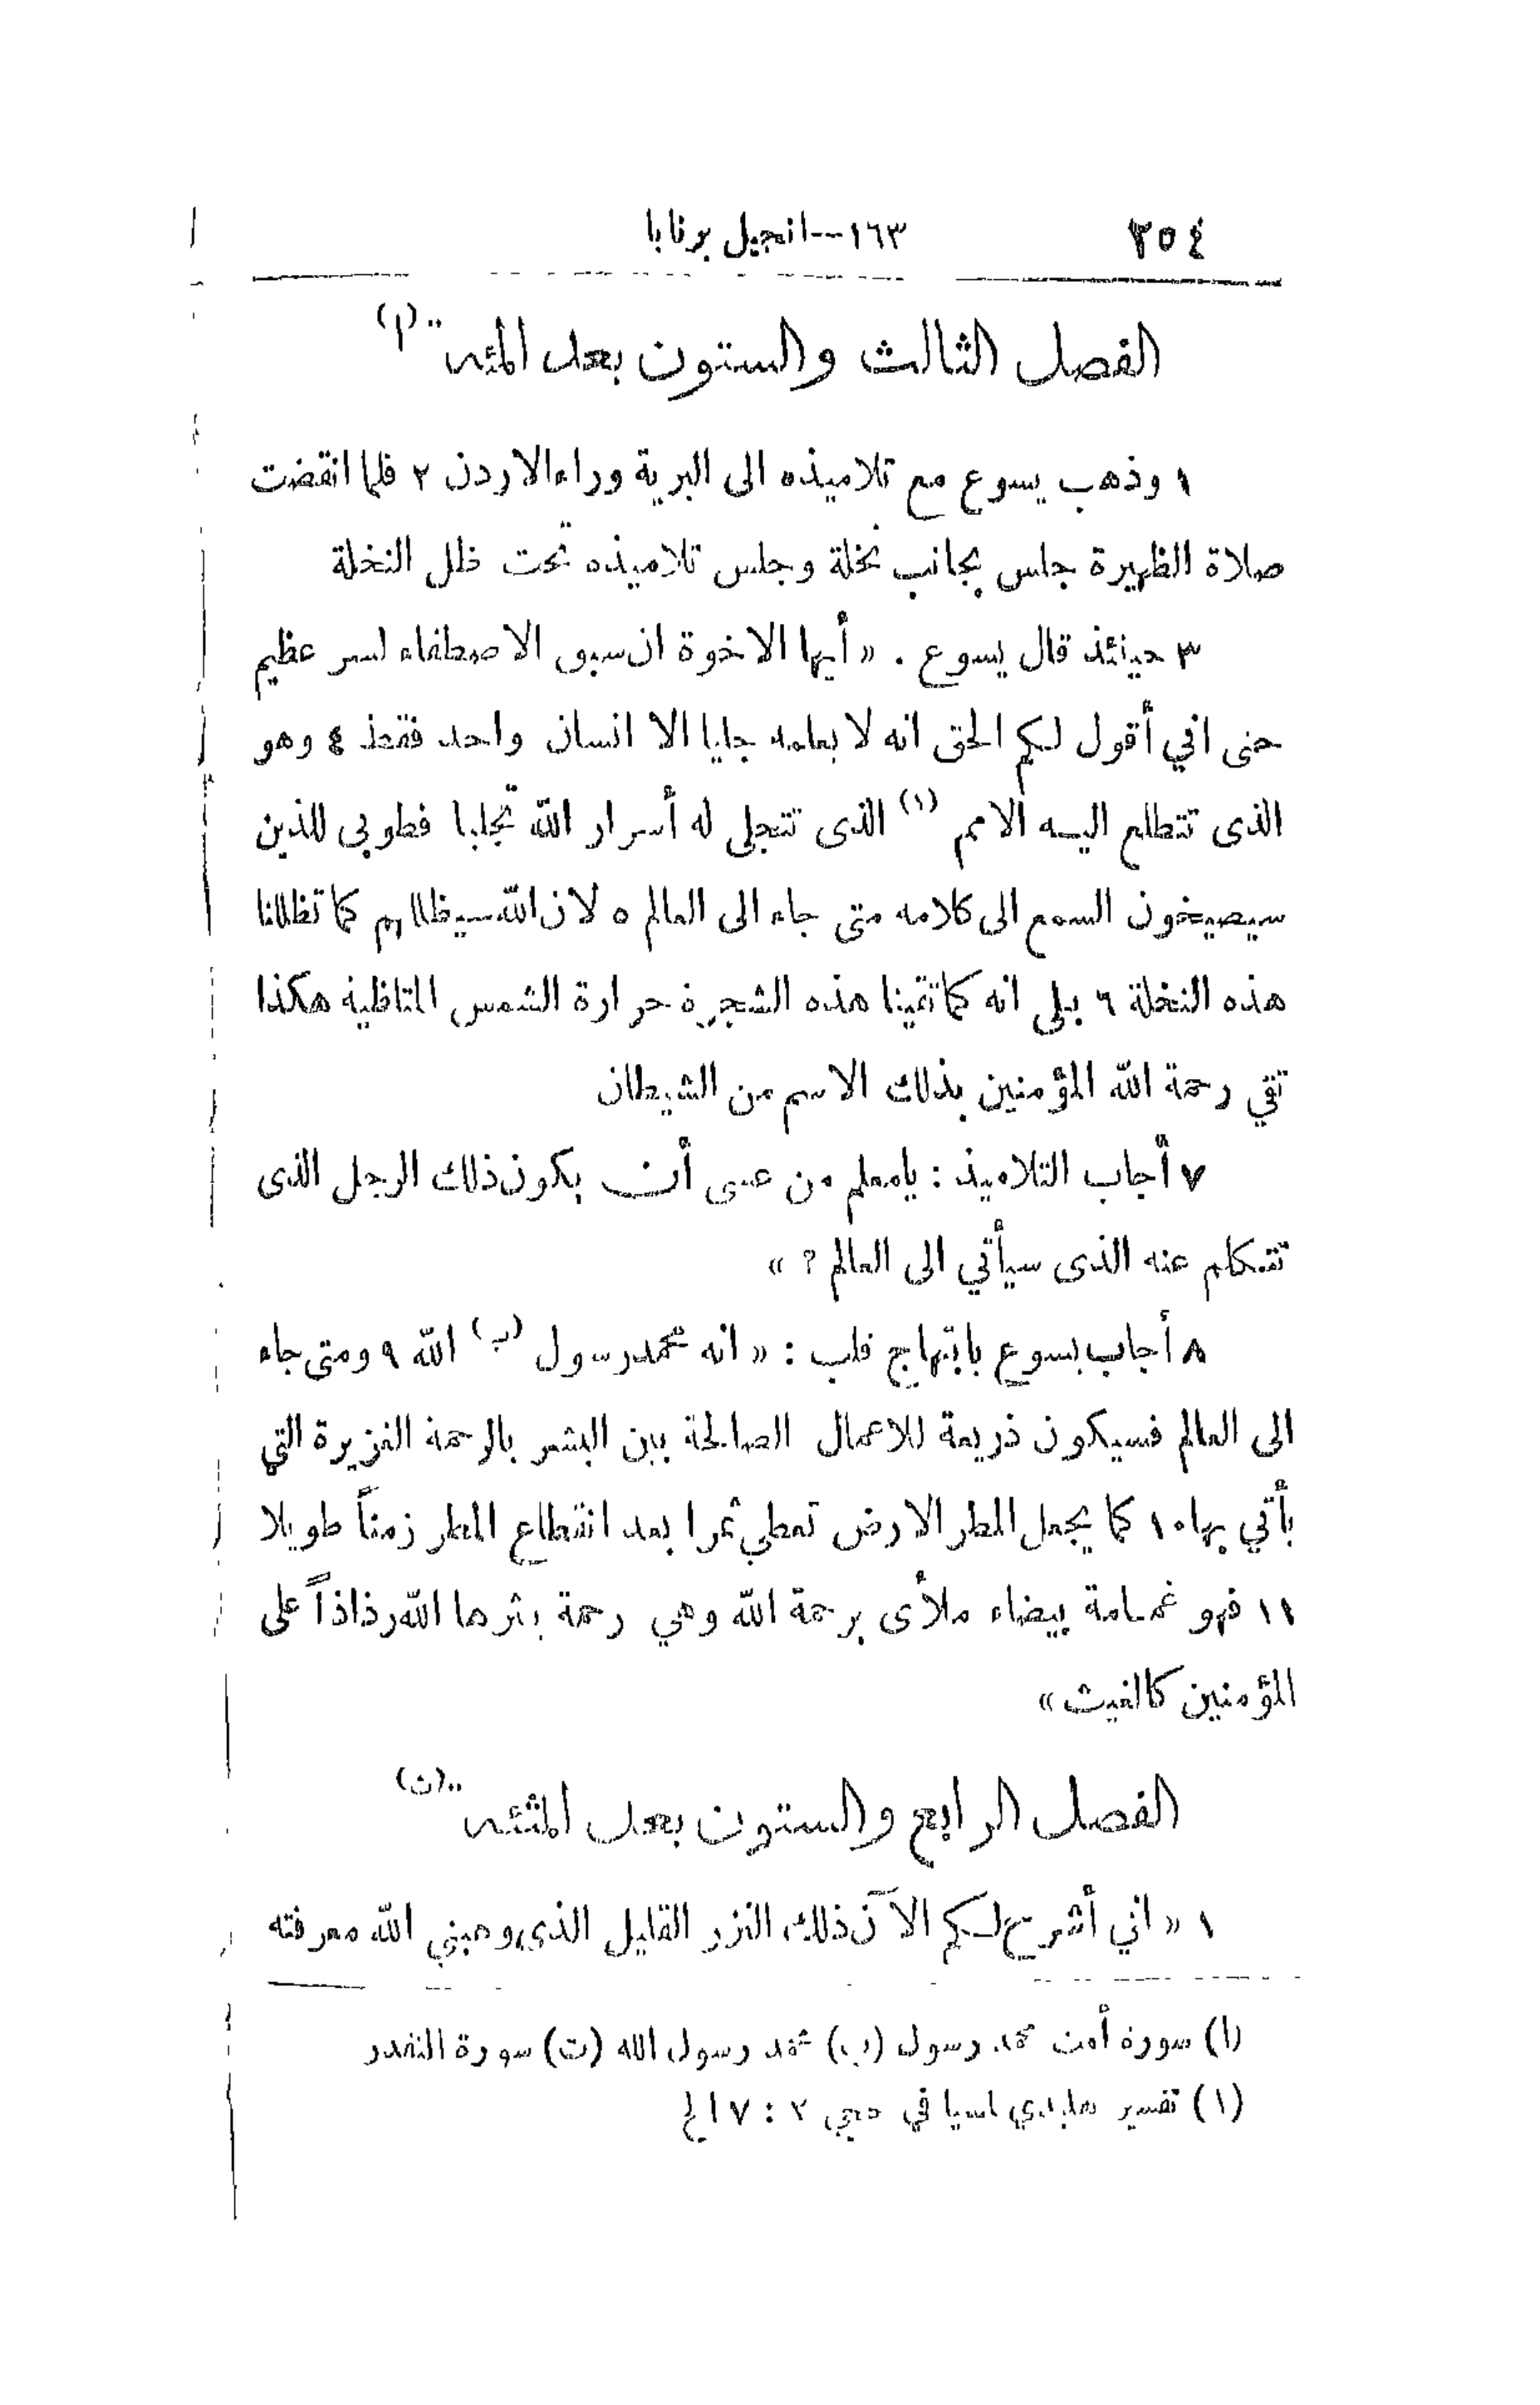 ٢٥٤ ١٦٣--انجيل برنابا
الفصل الثالث والستون بعد المئة (ا)
١ وذهب يسوع مع تلاميذه الى البرية وراء الاردن ٢ فلما انقضت
صلاة الظهيرة جلس بجانب نخلة وجلس تلاميذه تحت ظل النخلة
٣ حينئذ قال يسوع . « أيها الاخوة ان سبق الاصطفاء لسر عظيم
حتى اني أقول لكم الحق انه لا يعلمه جليا الا انسان واحد فقط ٤ وهو
الذى تتطلع اليه الامم (١) الذى تتجلى له أسرار الله تجليا فطوبى للذين
سيصيخون السمع الى كلامه متى جاء الى العالم ٥ لان الله سيظللهم كما تظللنا
هذه النخلة ٦ بلى انه كما تقينا هذه الشجرة حرارة الشمس المتلظية هكذا
تقي رحمة الله المؤمنين بذلك الاسم من الشيطان
٧ أجاب التلاميذ : يامعلم من عسى أن يكون ذلك الرجل الذى
تتكلم عنه الذى سيأتي الى العالم ? »
٨ أجاب يسوع بابتهاج قلب : « انه محمد رسول (ب) الله ٩ ومتى جاء
الى العالم فسيكون ذريعة للاعمال الصالحة بين البشر بالرحمة الغزيرة التي
يأتي بها ١٠ كما يجعل المطر الارض تعطي ثمرا بعد انقطاع المطر زمناً طويلا
١١ فهو غمامة بيضاء ملأى برحمة الله وهي رحمة ينثرها الله رذاذاً على
المؤمنين كالغيث »
الفصل الرابع والستون بعد المئة (ت)
١ « اني أشرح لكم الآن ذلك النزر القليل الذى وهبني الله معرفته
(ا) سورة أمن محمد رسول (ب) محمد رسول الله (ت) سورة القدر
(١) تفسير في حجي ٢ : ٧ الخ